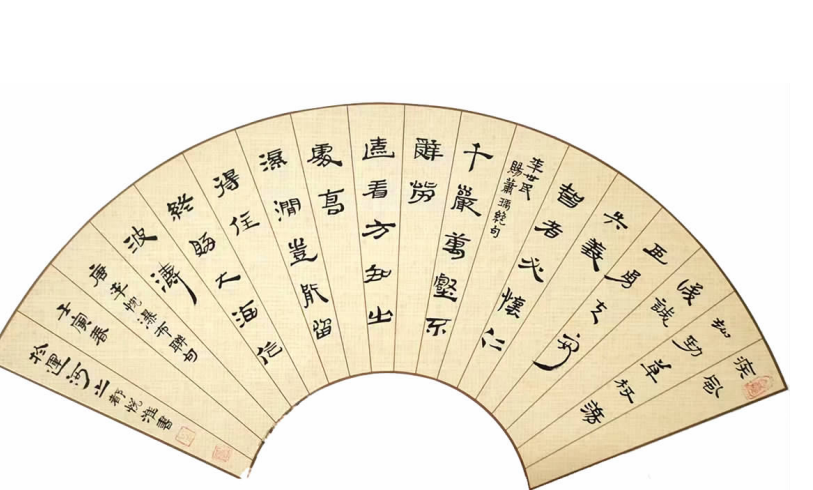 疾風
知勁草板蕩
誠
臣勇夫安
義
智者必懷仁
李世民
賜蕭瑀絕句
千巖萬壑不
辭勞
遠看方知出
處高
溪澗豈能留
得住
終歸大海作
波濤
唐李忱瀑布聯句
壬寅春
於運河之都悅淮書